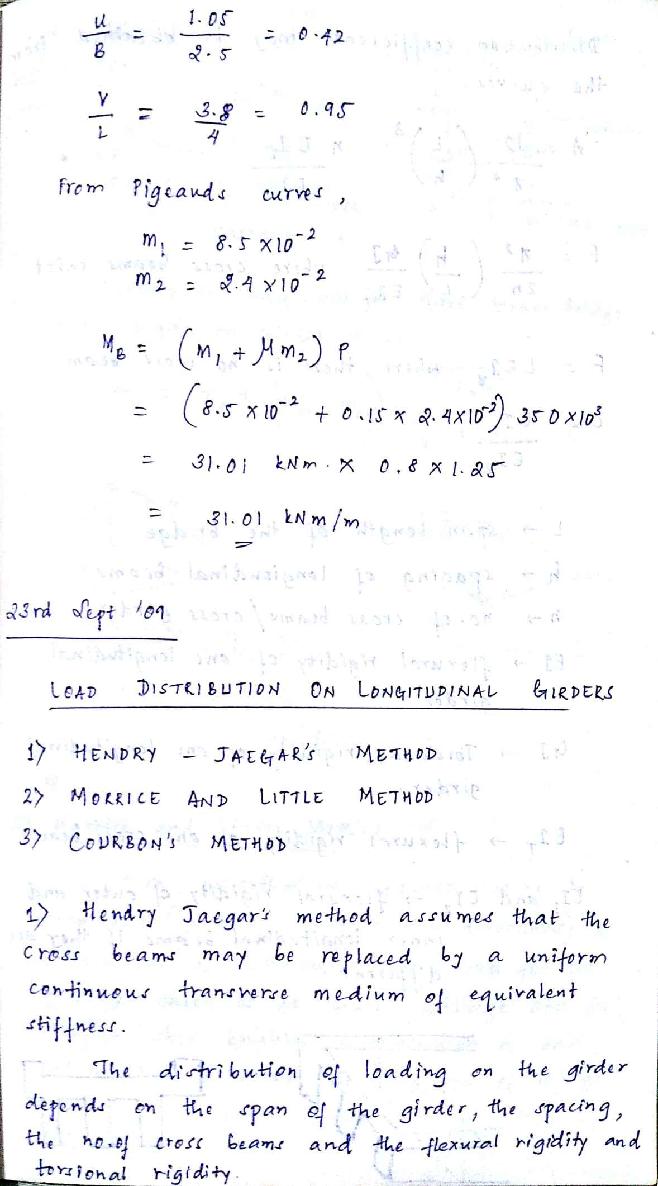 u/B = 1.05/2.5 = 0.42
V/L = 3.8/4 = 0.95
From Pigeauds curves,
m₁ = 8.5 × 10⁻²
m₂ = 2.4 × 10⁻²
M_B = (m₁ + μ m₂) P
= (8.5 × 10⁻² + 0.15 × 2.4×10⁻²) 350 ×10³
= 31.01 kNm × 0.8 × 1.25
= 31.01 kNm/m
23rd Sept '09
LOAD DISTRIBUTION ON LONGITUDINAL GIRDERS
1) HENDRY - JAEGAR'S METHOD
2) MORRICE AND LITTLE METHOD
3) COURBON'S METHOD
1) Hendry Jaegar's method assumes that the
cross beams may be replaced by a uniform
continuous transverse medium of equivalent
stiffness.
The distribution of loading on the girder
depends on the span of the girder, the spacing,
the no.of cross beams and the flexural rigidity and
torsional rigidity.